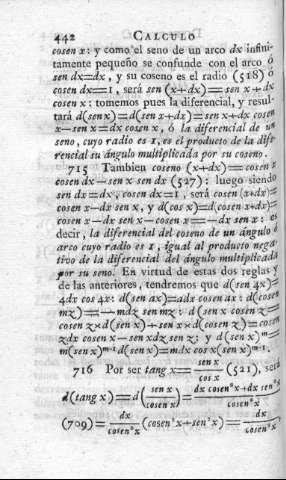 442 CALCULO
cosen x: y como el seno de un arco dx infini-
tamente pequeño se confunde con el arco ó
sen dx=dx, y su coseno es el radió (518) ó
cosen dx=1, será sen (x+dx)=sen x+dx
cosen x: tomemos pues la diferencial, y resul-
tará d(sen x)=d(sen x+dx)=sen x+dx cosen
x—sen x=dx cosen x, ó la diferencial de un
seno, cuyo radio es 1, es el producto de la dife-
rencial su ángulo multiplicada por su coseno.
715 Tambien coseno (x+dx)=cosen x
cosen dx—sen x sen dx (527): luego siendo
sen dx=dx, cosen dx=1, será cosen (x+dx)=
cosen x—dx sen x, y d(cos x)=d(cosen x+dx)=
cosen x—dx sen x—cosen x=—dx sen x: es
decir, la diferencial del coseno de un ángulo ó
arco cuyo radio es 1, igual al producto nega-
tivo de la diferencial del ángulo multiplicada
por su seno. En virtud de estas dos reglas y
de las anteriores, tendremos que d(sen 4x)=
4dx cos 4x: d(sen ax)=adx cosen ax: d(cosen
mz)=—mdz sen mz: d(sen x cosen z)=
cosen z×d(sen x)+sen x×d(cosen z)=cosen
zdx cosen x—sen xdz sen z; y d(sen x)m=
m(sen x)m-1 d(sen x)=mdx cos x(sen x)m-1.
716 Por ser tang x=sen x/cos x (521), será
d(tang x)=d(sen x/cosen x)=dx cosen²x+dx sen²x/cosen²x
(709)=dx/cosen²x(cosen²x+sen²x)=dx/cosen²x